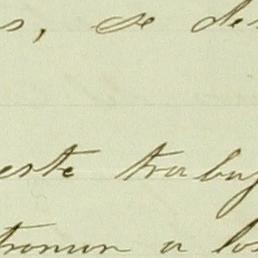 s, se de
este trabaj
tronun a los